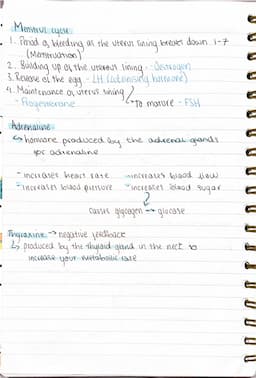 Menstrual cycle
1. Period of bleeding as the uterus lining breaks down 1-7
(Menstruation)
2. Building up of the uterus lining - Oestrogen
3. Release of the egg - LH (Luteinising hormone)
4. Maintenance of uterus lining
- Progesterone
To mature - FSH
Adrenaline
↳ hormone produced by the adrenal glands
for adrenaline
- increases heart rate - increases blood flow
- increases blood pressure - increases blood sugar
causes glycogen → glucose
Thyroxine → negative feedback
↳ produced by the thyroid gland in the neck to
increase your metabolic rate